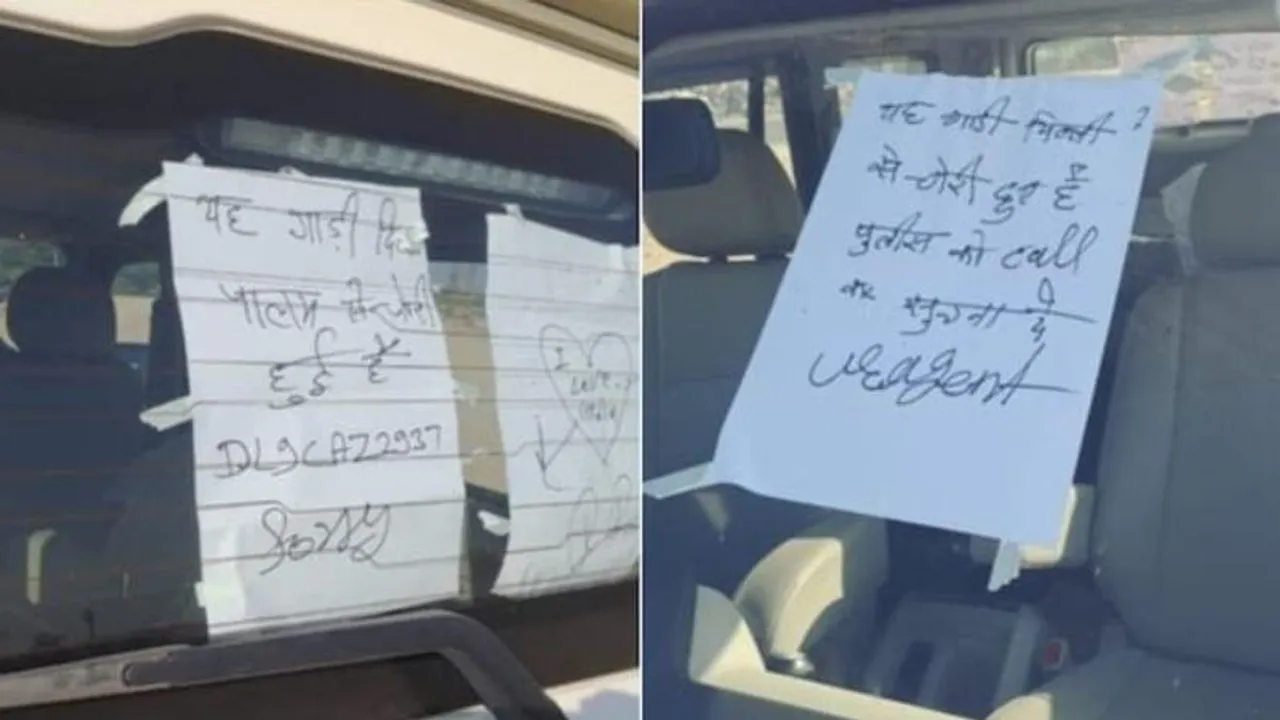 यह गाड़ी
पालम से चोरी
हुई है
DL9CAZ2937
Sorry
I
Love
यह गाडी दिल्ली
से चोरी हुई है
पुलीस को call
कर सुचना दे
urgent